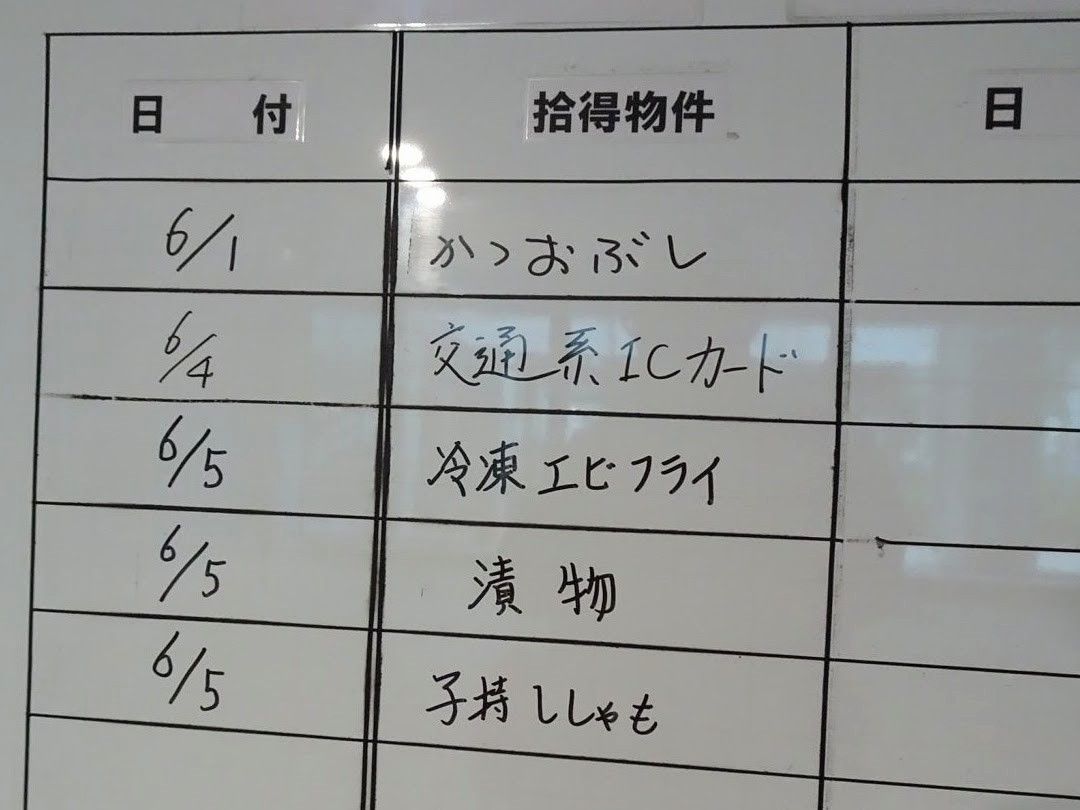 日 付 拾得物件 日
6/1 かつおぶし
6/4 交通系ICカード
6/5 冷凍エビフライ
6/5 漬物
6/5 子持ししゃも